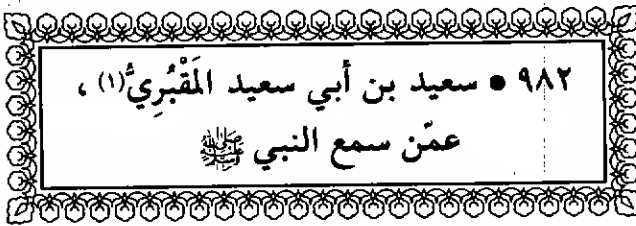 ٩٨٢ ● سعيد بن أبي سعيد المَقْبُرِيُّ(١) ،
عمّن سمع النبي ﷺ